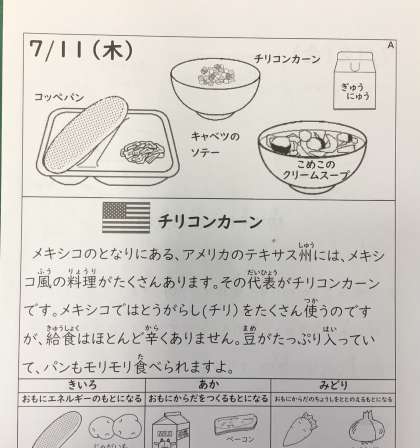 7/11(木)
A
チリコンカーン
ぎゅう
にゅう
コッペパン
キャベツの
ソテー
こめこの
クリームスープ
チリコンカーン
メキシコのとなりにある、アメリカのテキサス州しゅうには、メキシ
コ風ふうの料理りょうりがたくさんあります。その代表だいひょうがチリコンカーン
です。メキシコではとうがらし(チリ)をたくさん使つかうのです
が、給食きゅうしょくはほとんど辛からくありません。豆まめがたっぷり入はいってい
て、パンもモリモリ食たべられますよ。
きいろ あか みどり
おもにエネルギーのもとになる おもにからだをつくるもとになる おもにからだのちょうしをととのえるもとになる
じゃがいも ベーコン